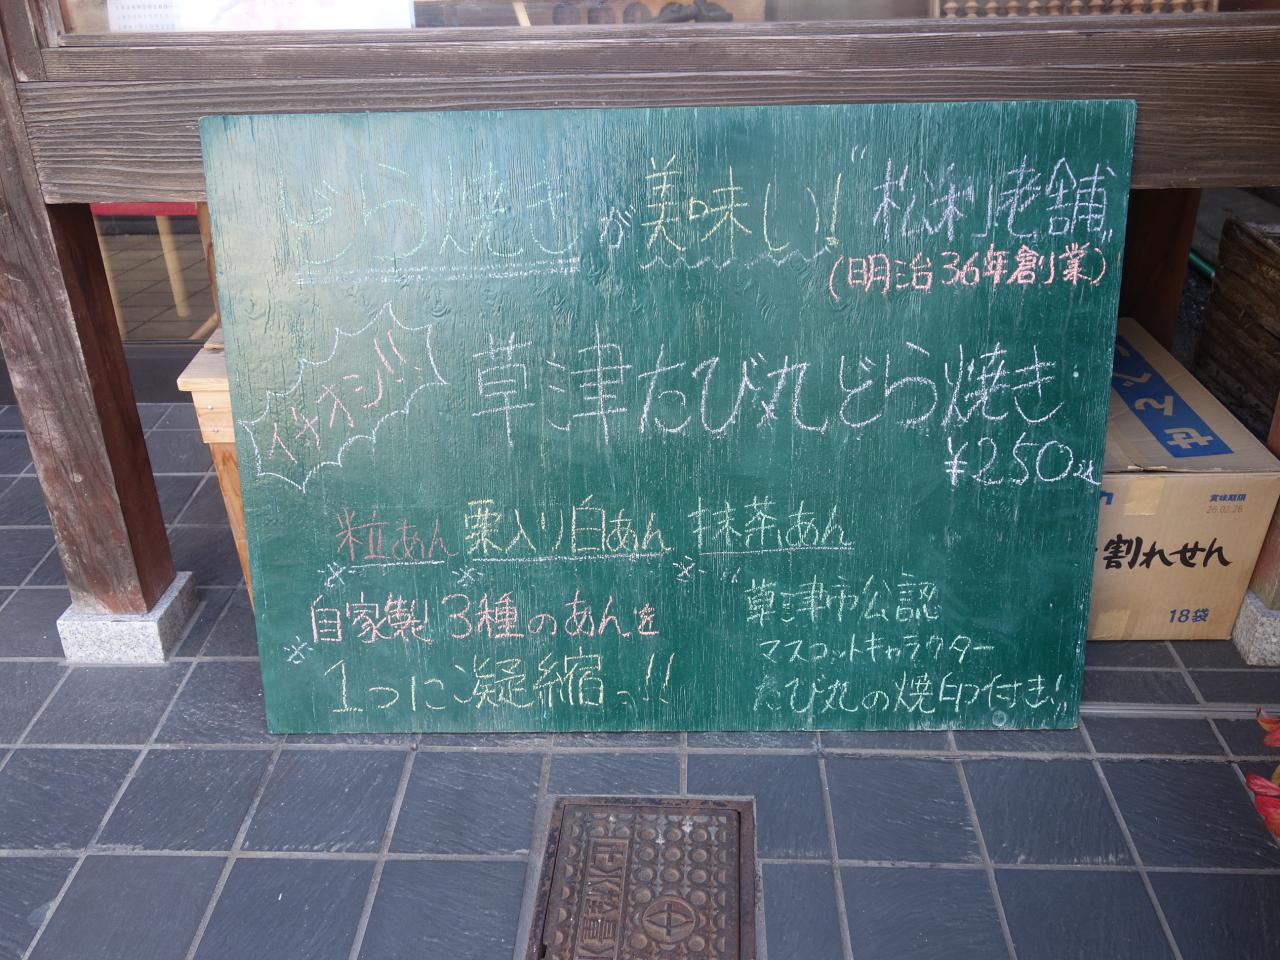 どら焼きが美味しい! "松利老舗"
(明治36年創業)
イチオシ!!
草津たび丸どら焼き
¥250込
粒あん 栗入り白あん 抹茶あん
自家製 3種のあんを
1つに凝縮っ!!
草津市公認
マスコットキャラクター
たび丸の焼印付き!!
賞味期限
26.02.26
割れせん
18袋